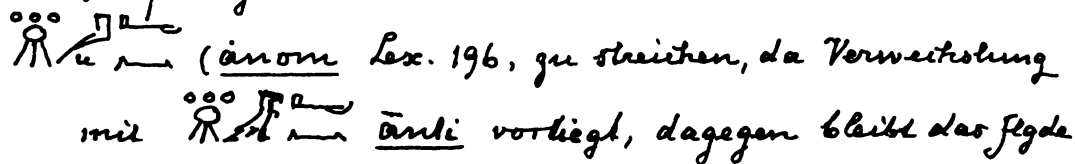 (änom Lex. 196, zu streichen, da Verwechslung
mit änli vorliegt, dagegen bleibt das flgde